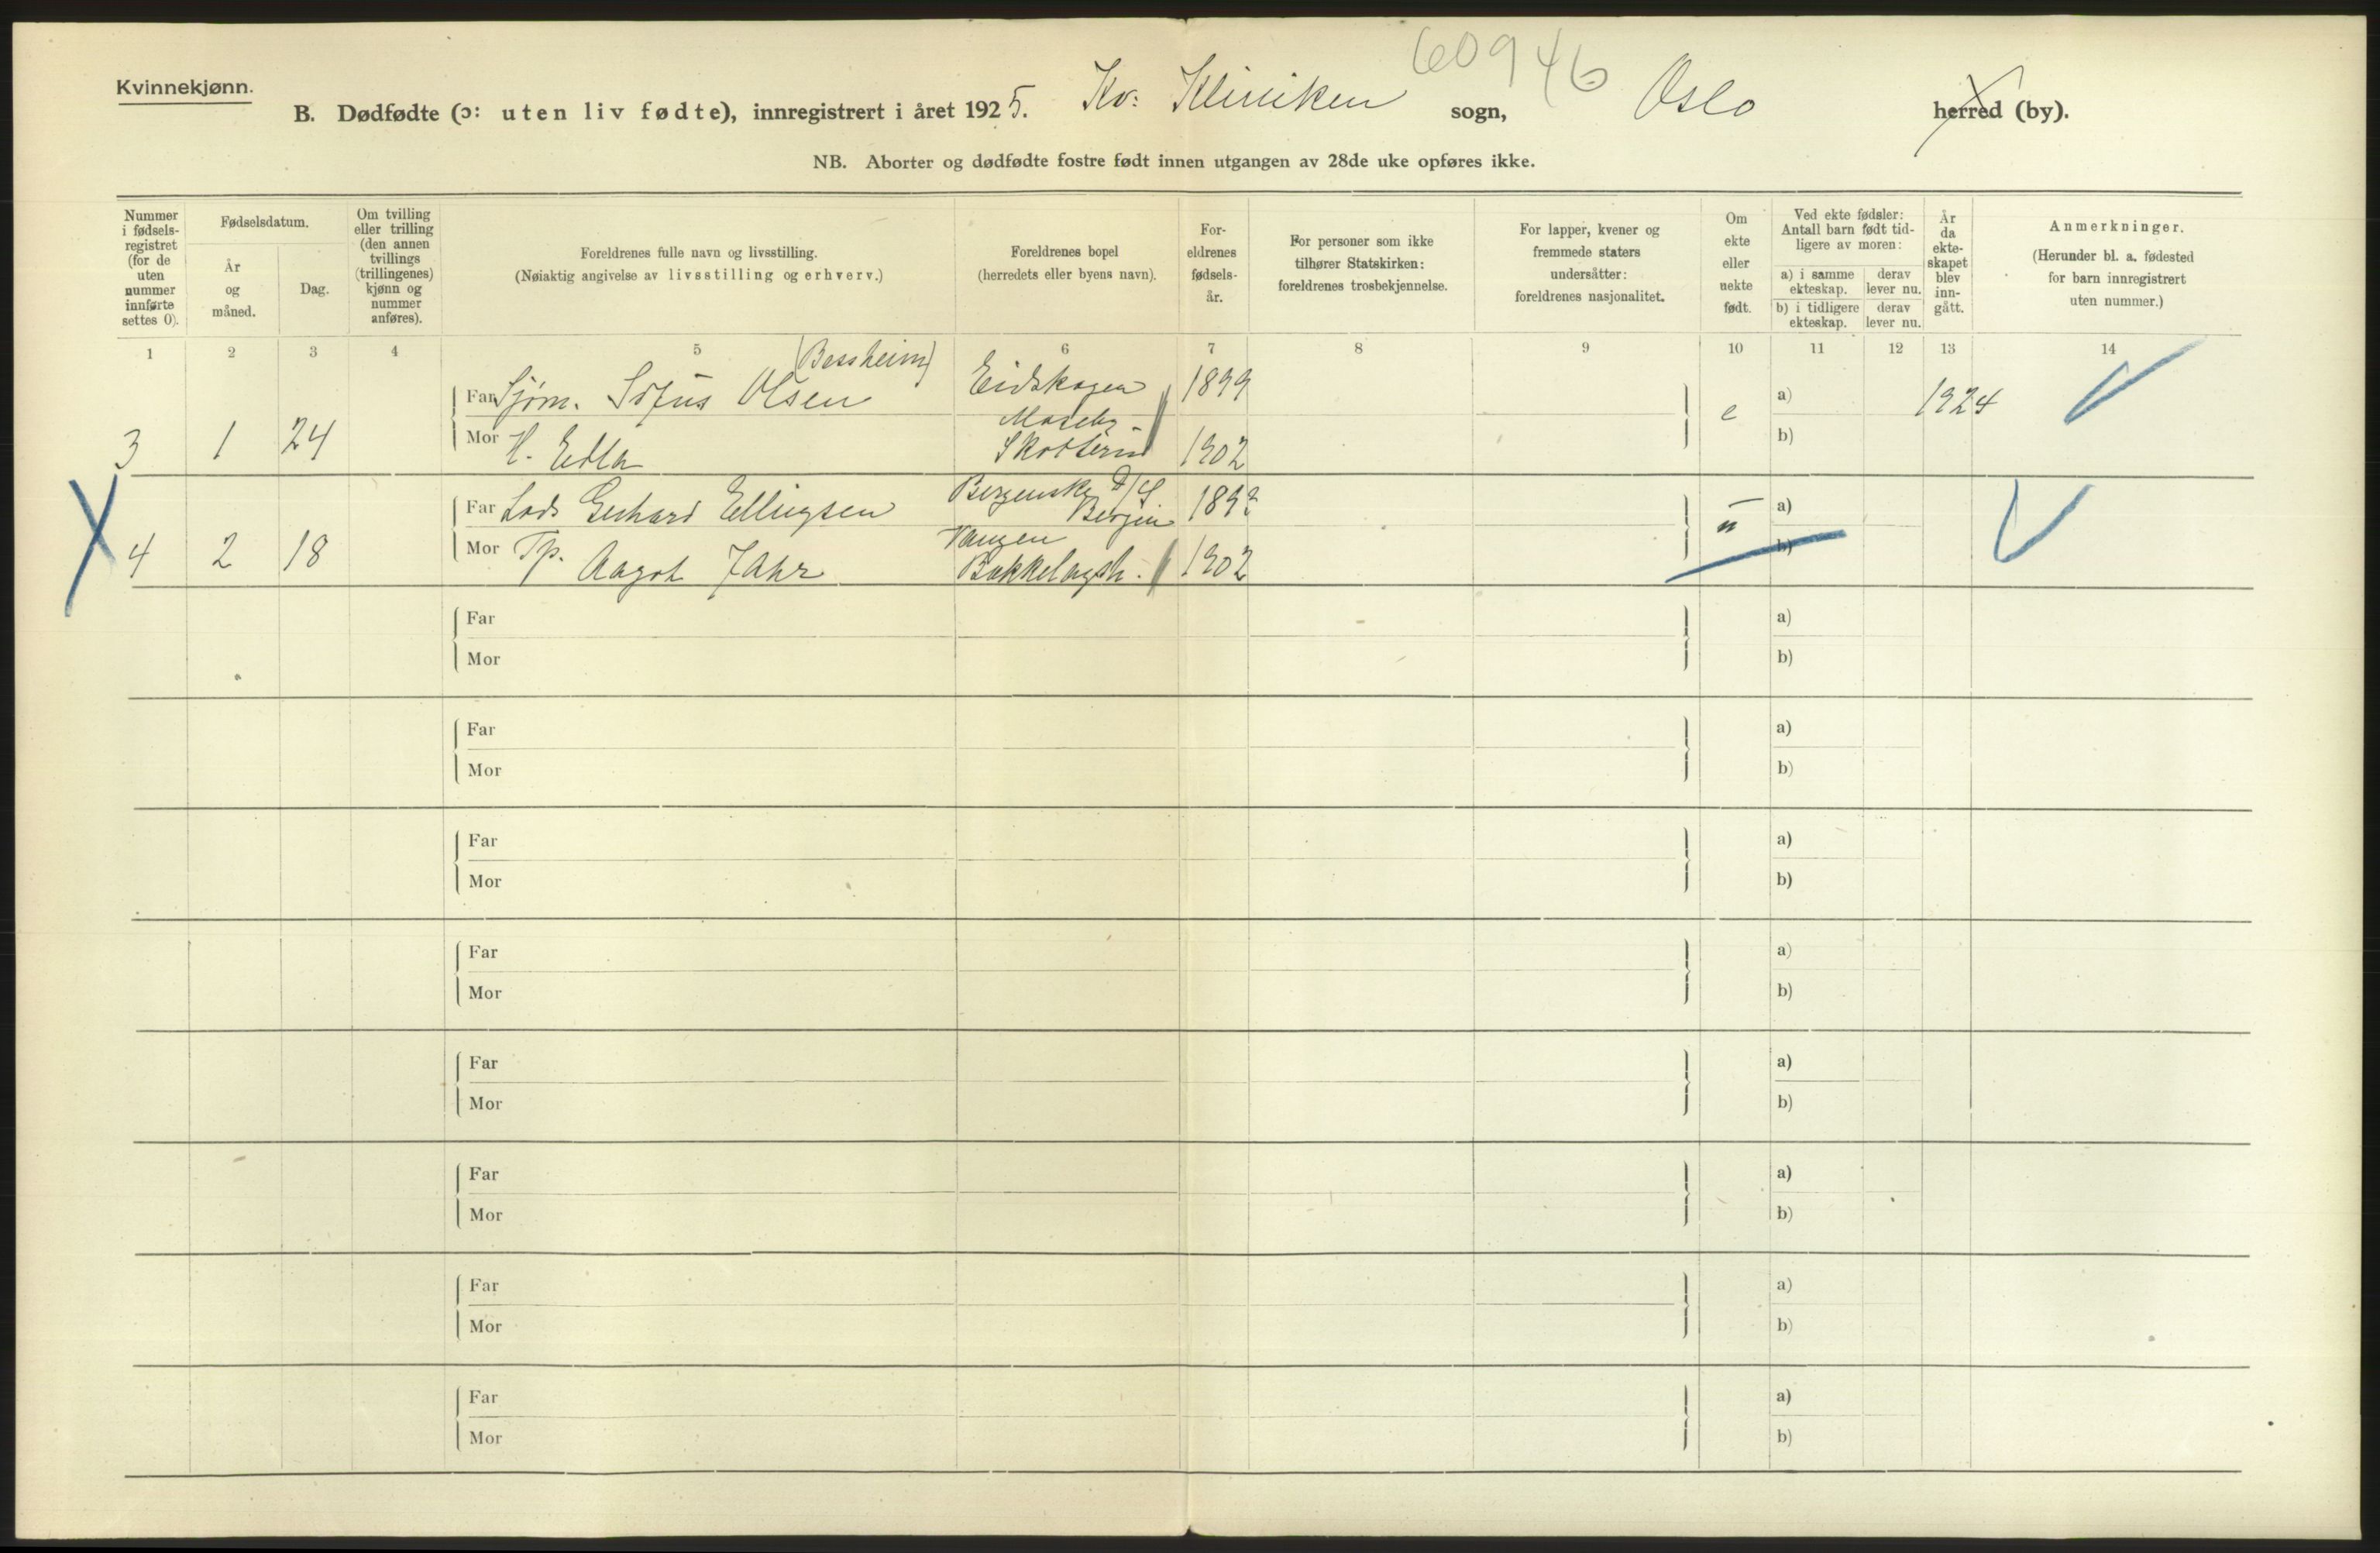 Kvinnekjønn.
60946
B. Dødfødte (ɔ: uten liv fødte), innregistrert i året 1925. Kv: Kliniken sogn, Oslo herred (by).
NB. Aborter og dødfødte fostre født innen utgangen av 28de uke opføres ikke.
Nummer i fødsels-registret (for de uten nummer innførte settes 0).
Fødselsdatum.
År og måned.
Dag.
Om tvilling eller trilling (den annen tvillings (trillingenes) kjønn og nummer anføres).
Foreldrenes fulle navn og livsstilling.
(Nøiaktig angivelse av livsstilling og erhverv.)
Foreldrenes bopel
(herredets eller byens navn).
For-eldrenes fødsels-år.
For personer som ikke tilhører Statskirken: foreldrenes trosbekjennelse.
For lapper, kvener og fremmede staters undersåtter: foreldrenes nasjonalitet.
Om ekte eller uekte født.
Ved ekte fødsler: Antall barn født tid-ligere av moren:
a) i samme ekteskap.
derav lever nu.
b) i tidligere ekteskap.
derav lever nu.
År da ekte-skapet blev inn-gått.
Anmerkninger.
(Herunder bl. a. fødested for barn innregistrert uten nummer.)
1 2 3 4 5 6 7 8 9 10 11 12 13 14
(Bessheim)
Far Sjøm. Sofus Olsen Eidskogen 1899 a) 1924
3 1 24 Mor H. Edla Skotterud 1902 e b)
Far Gerhard Ellingsen Bergenske D/S Bergen 1892 a)
4 2 18 Mor Tp. Aagot Jahr Tangen Bækkelagsh. 1902 u b)
Far a)
Mor b)
Far a)
Mor b)
Far a)
Mor b)
Far a)
Mor b)
Far a)
Mor b)
Far a)
Mor b)
Far a)
Mor b)
Far a)
Mor b)